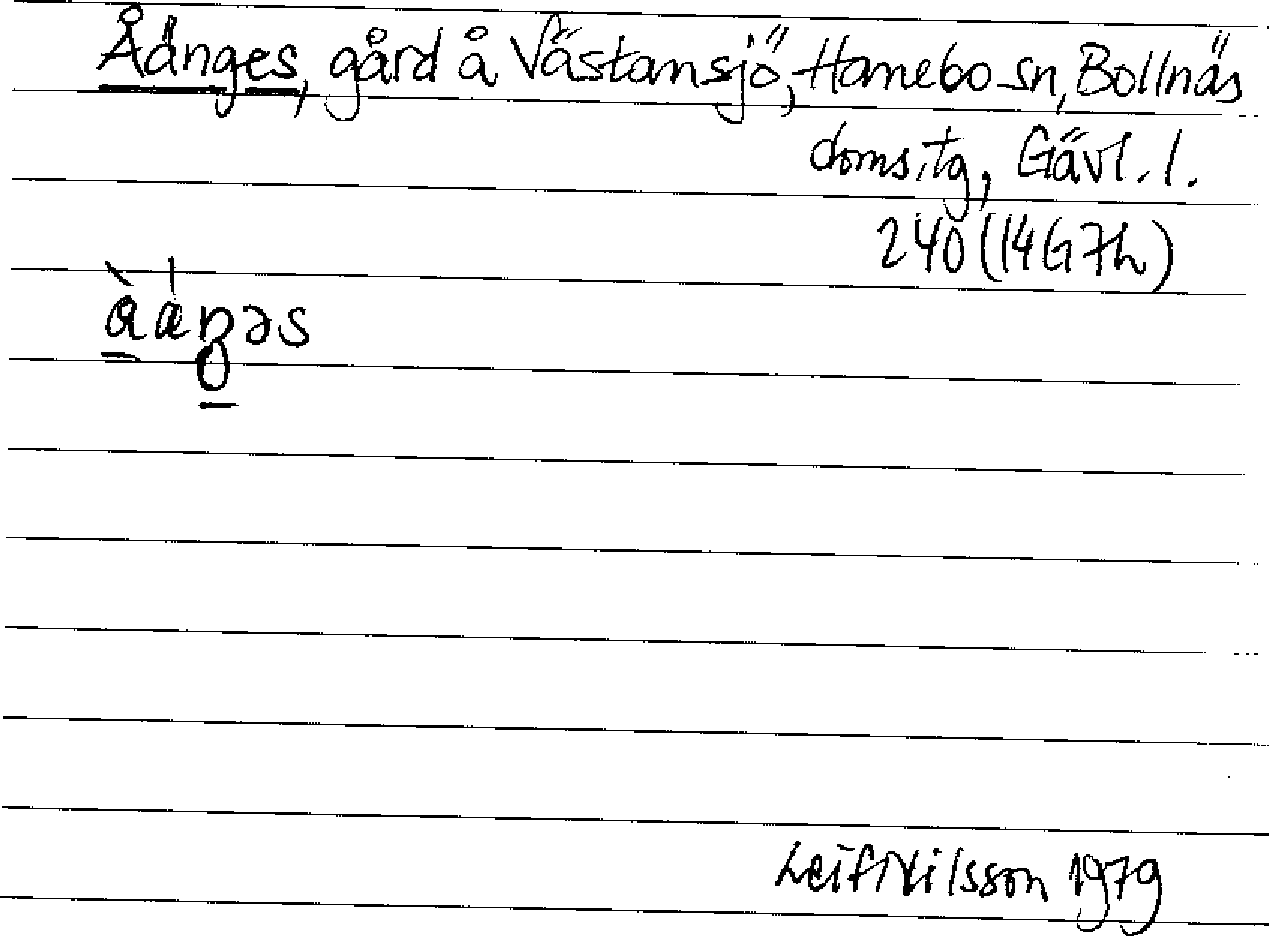 Åänges, gård å Västansjö, Hanebo sn, Bollnäs
doms.tg, Gävl. l.
240 (14G7h)
å̀áŋəs
Leif Nilsson 1979